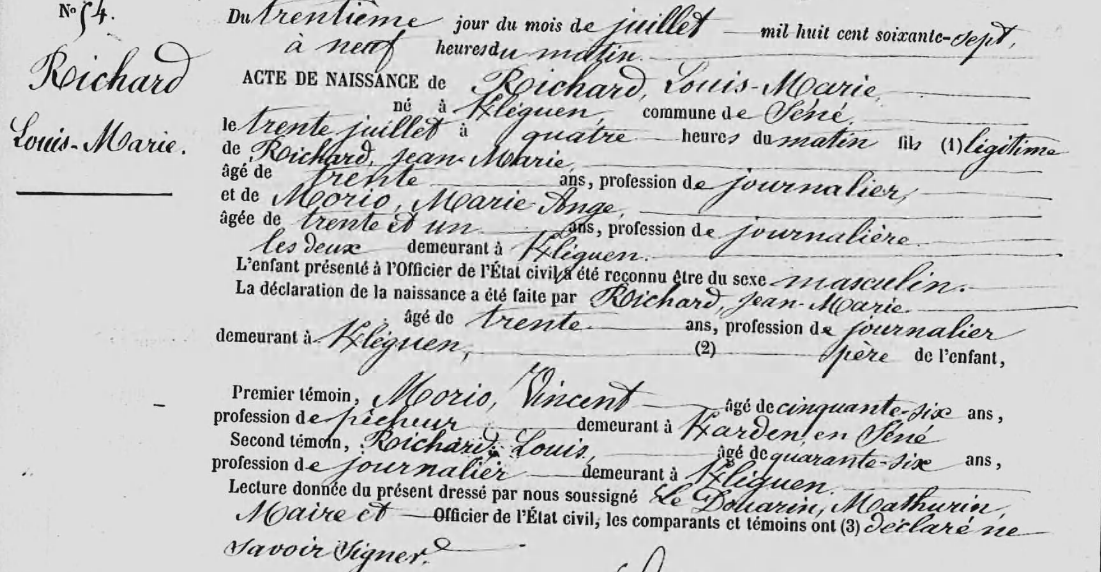 N° 54.
Richard
Louis-Marie.
Du trentième jour du mois de juillet mil huit cent soixante-sept,
à neuf heures du matin.
ACTE DE NAISSANCE de Richard, Louis-Marie,
né à Kléguen, commune de Séné,
le trente juillet à quatre heures du matin fils (1) légitime
de Richard, Jean-Marie,
âgé de trente ans, profession de journalier,
et de Morio, Marie Ange,
âgée de trente et un ans, profession de journalière
les deux demeurant à Kléguen.
L'enfant présenté à l'Officier de l'État civil a été reconnu être du sexe masculin.
La déclaration de la naissance a été faite par Richard, Jean-Marie
âgé de trente ans, profession de journalier
demeurant à Kléguen, (2) père de l'enfant,
Premier témoin, Morio, Vincent âgé de cinquante-six ans,
profession de pêcheur demeurant à Karden, en Séné
Second témoin, Richard, Louis, âgé de quarante-six ans,
profession de journalier demeurant à Kléguen.
Lecture donnée du présent dressé par nous soussigné Le Douarin, Mathurin,
Maire et Officier de l'État civil, les comparants et témoins ont (3) déclaré ne
savoir signer.